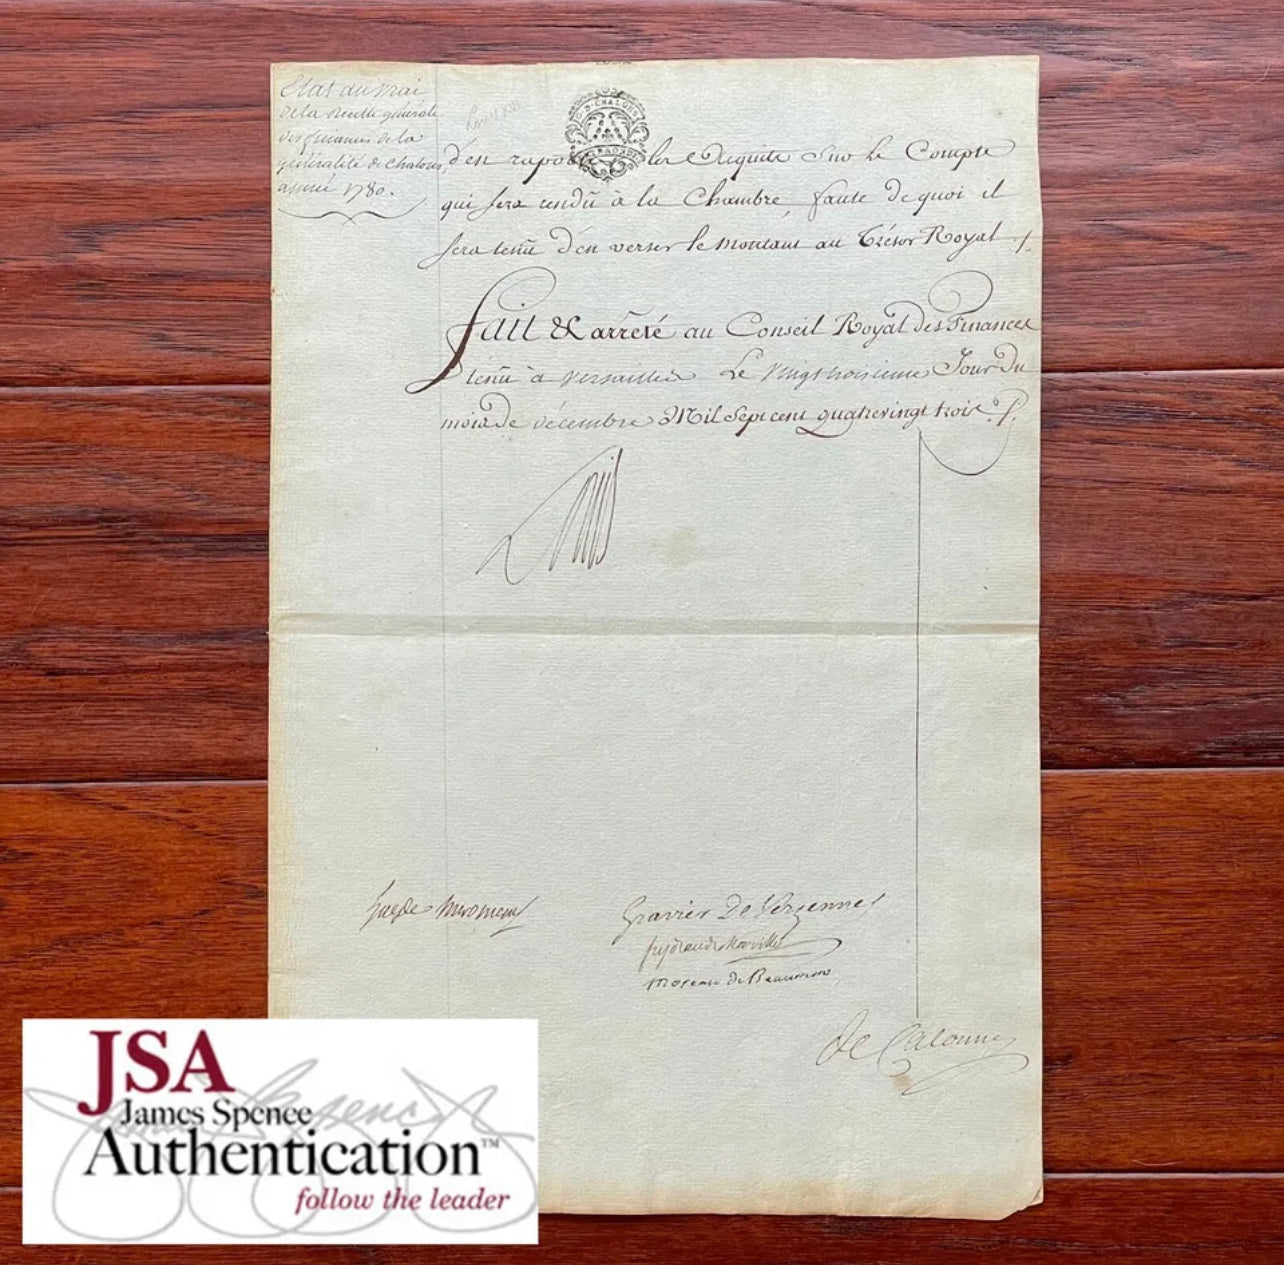 Etat du vrai
de la Recette générale
des finances de la
généralité de Chalons,
année 1780.
Louis XVI
G. D. CHALONS
d'en raporter les Acquits sur le Compte
qui sera rendû à la Chambre, faute de quoi il
sera tenû d'en verser le montant au Trésor Royal
fait & arrêté au Conseil Royal des Finances
tenû à Versailles Le vingt troisieme Jour du
mois de décembre Mil Sept cent quatrevingt trois
Louis
Gravier De Vergennes
Moreau de Beaumont
De Calonne
JSA
James Spence
Authentication™
follow the leader